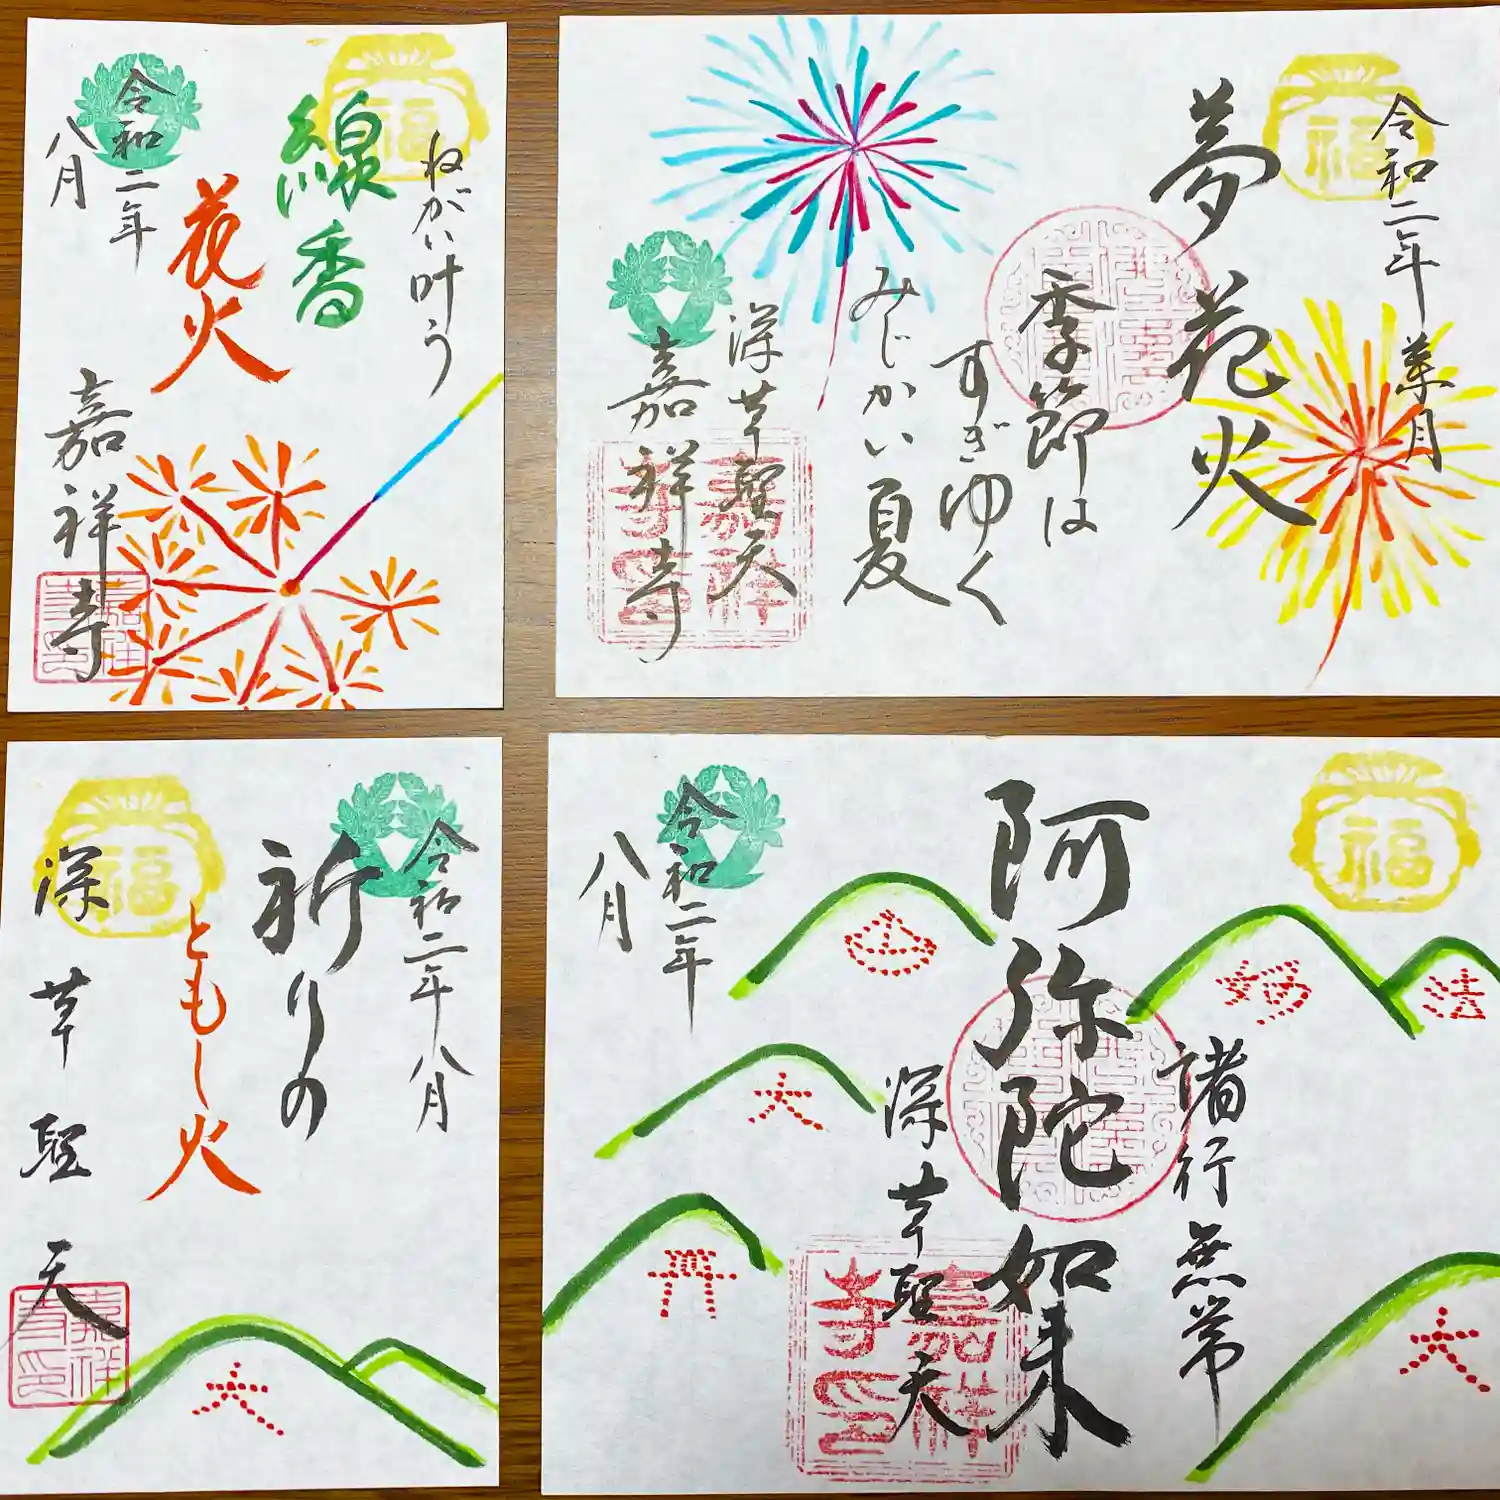 ねがい叶う
線香
花火
令和二年
八月
嘉祥寺
福
令和二年葉月
夢花火
季節は
すぎゆく
みじかい夏
深草聖天
嘉祥寺
福
嘉祥寺印
令和二年八月
祈りの
ともし火
深草聖天
福
嘉祥寺印
大
福
諸行無常
阿弥陀如来
深草聖天
令和二年
八月
妙
法
大
大
嘉祥寺印